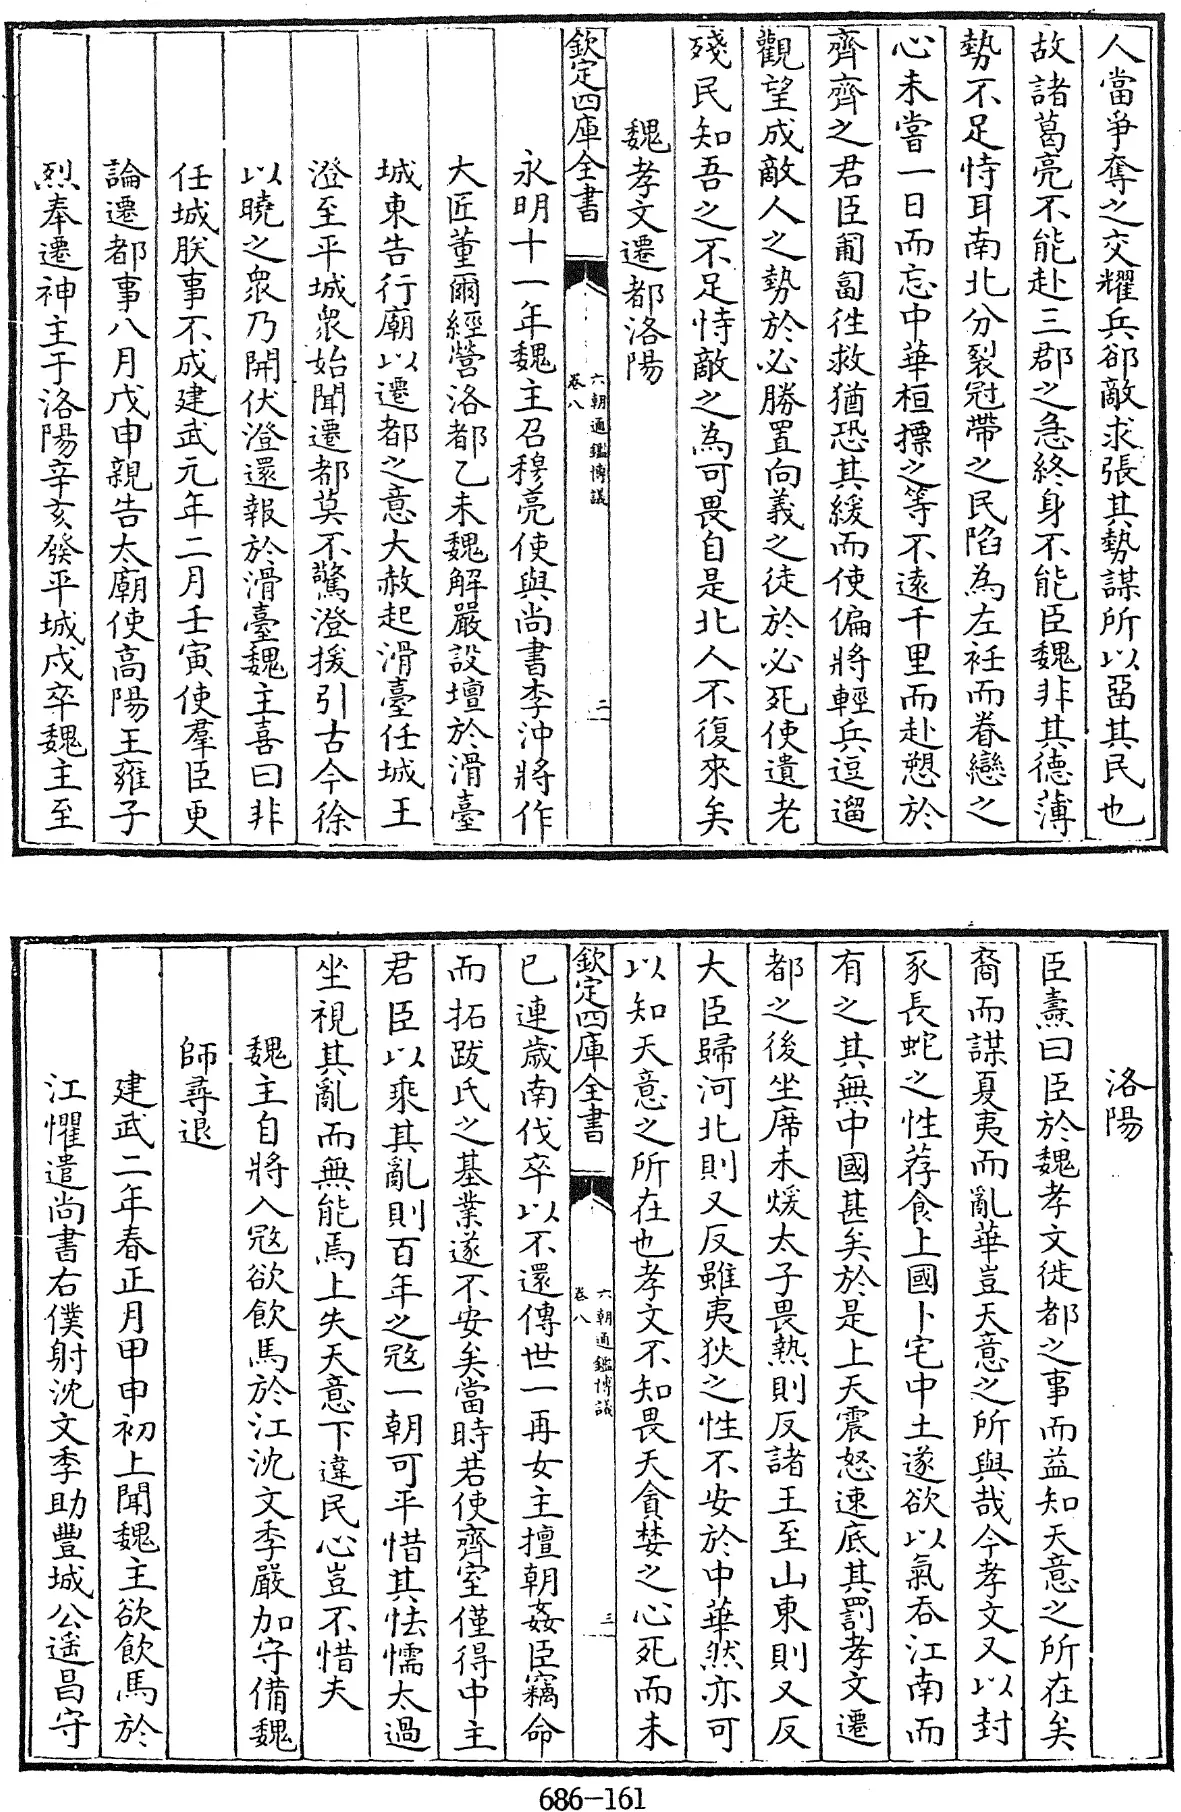 人當爭奪之交耀兵郤敵求張其勢謀所以畱其民也
故諸葛亮不能赴三郡之急終身不能臣魏非其德薄
勢不足恃耳南北分裂冠帶之民陷為左衽而眷戀之
心未嘗一日而忘中華桓摽之等不逺千里而赴愬於
齊齊之君臣匍匐徃救猶恐其緩而使偏將輕兵逗遛
觀望成敵人之勢於必勝置向義之徒於必死使遺老
殘民知吾之不足恃敵之為可畏自是北人不復來矣
魏孝文遷都洛陽
欽定四庫全書
六朝通鑑博議
卷八
二
永明十一年魏主召穆亮使與尚書李沖將作
大匠董爾經營洛都乙未魏解嚴設壇於滑臺
城東告行廟以遷都之意大赦起滑臺任城王
澄至平城衆始聞遷都莫不驚澄援引古今徐
以曉之衆乃開伏澄還報於滑臺魏主喜曰非
任城朕事不成建武元年二月壬寅使羣臣更
論遷都事八月戊申親告太廟使高陽王雍子
烈奉遷神主于洛陽辛亥發平城戍卒魏主至
洛陽
臣燾曰臣於魏孝文徙都之事而益知天意之所在矣
裔而謀夏夷而亂華豈天意之所與哉今孝文又以封
豕長蛇之性荐食上國卜宅中土遂欲以氣吞江南而
有之其無中國甚矣於是上天震怒速底其罰孝文遷
都之後坐席未煖太子畏熱則反諸王至山東則又反
大臣歸河北則又反雖夷狄之性不安於中華然亦可
以知天意之所在也孝文不知畏天貪婪之心死而未
已連歲南伐卒以不還傳世一再女主擅朝姦臣竊命
而拓跋氏之基業遂不安矣當時若使齊室僅得中主
君臣以乘其亂則百年之宼一朝可平惜其怯懦太過
坐視其亂而無能焉上失天意下違民心豈不惜夫
欽定四庫全書
六朝通鑑博議
卷八
三
魏主自將入宼欲飲馬於江沈文季嚴加守備魏
師尋退
建武二年春正月甲申初上聞魏主欲飲馬於
江懼遣尚書右僕射沈文季助豐城公遥昌守
686-161